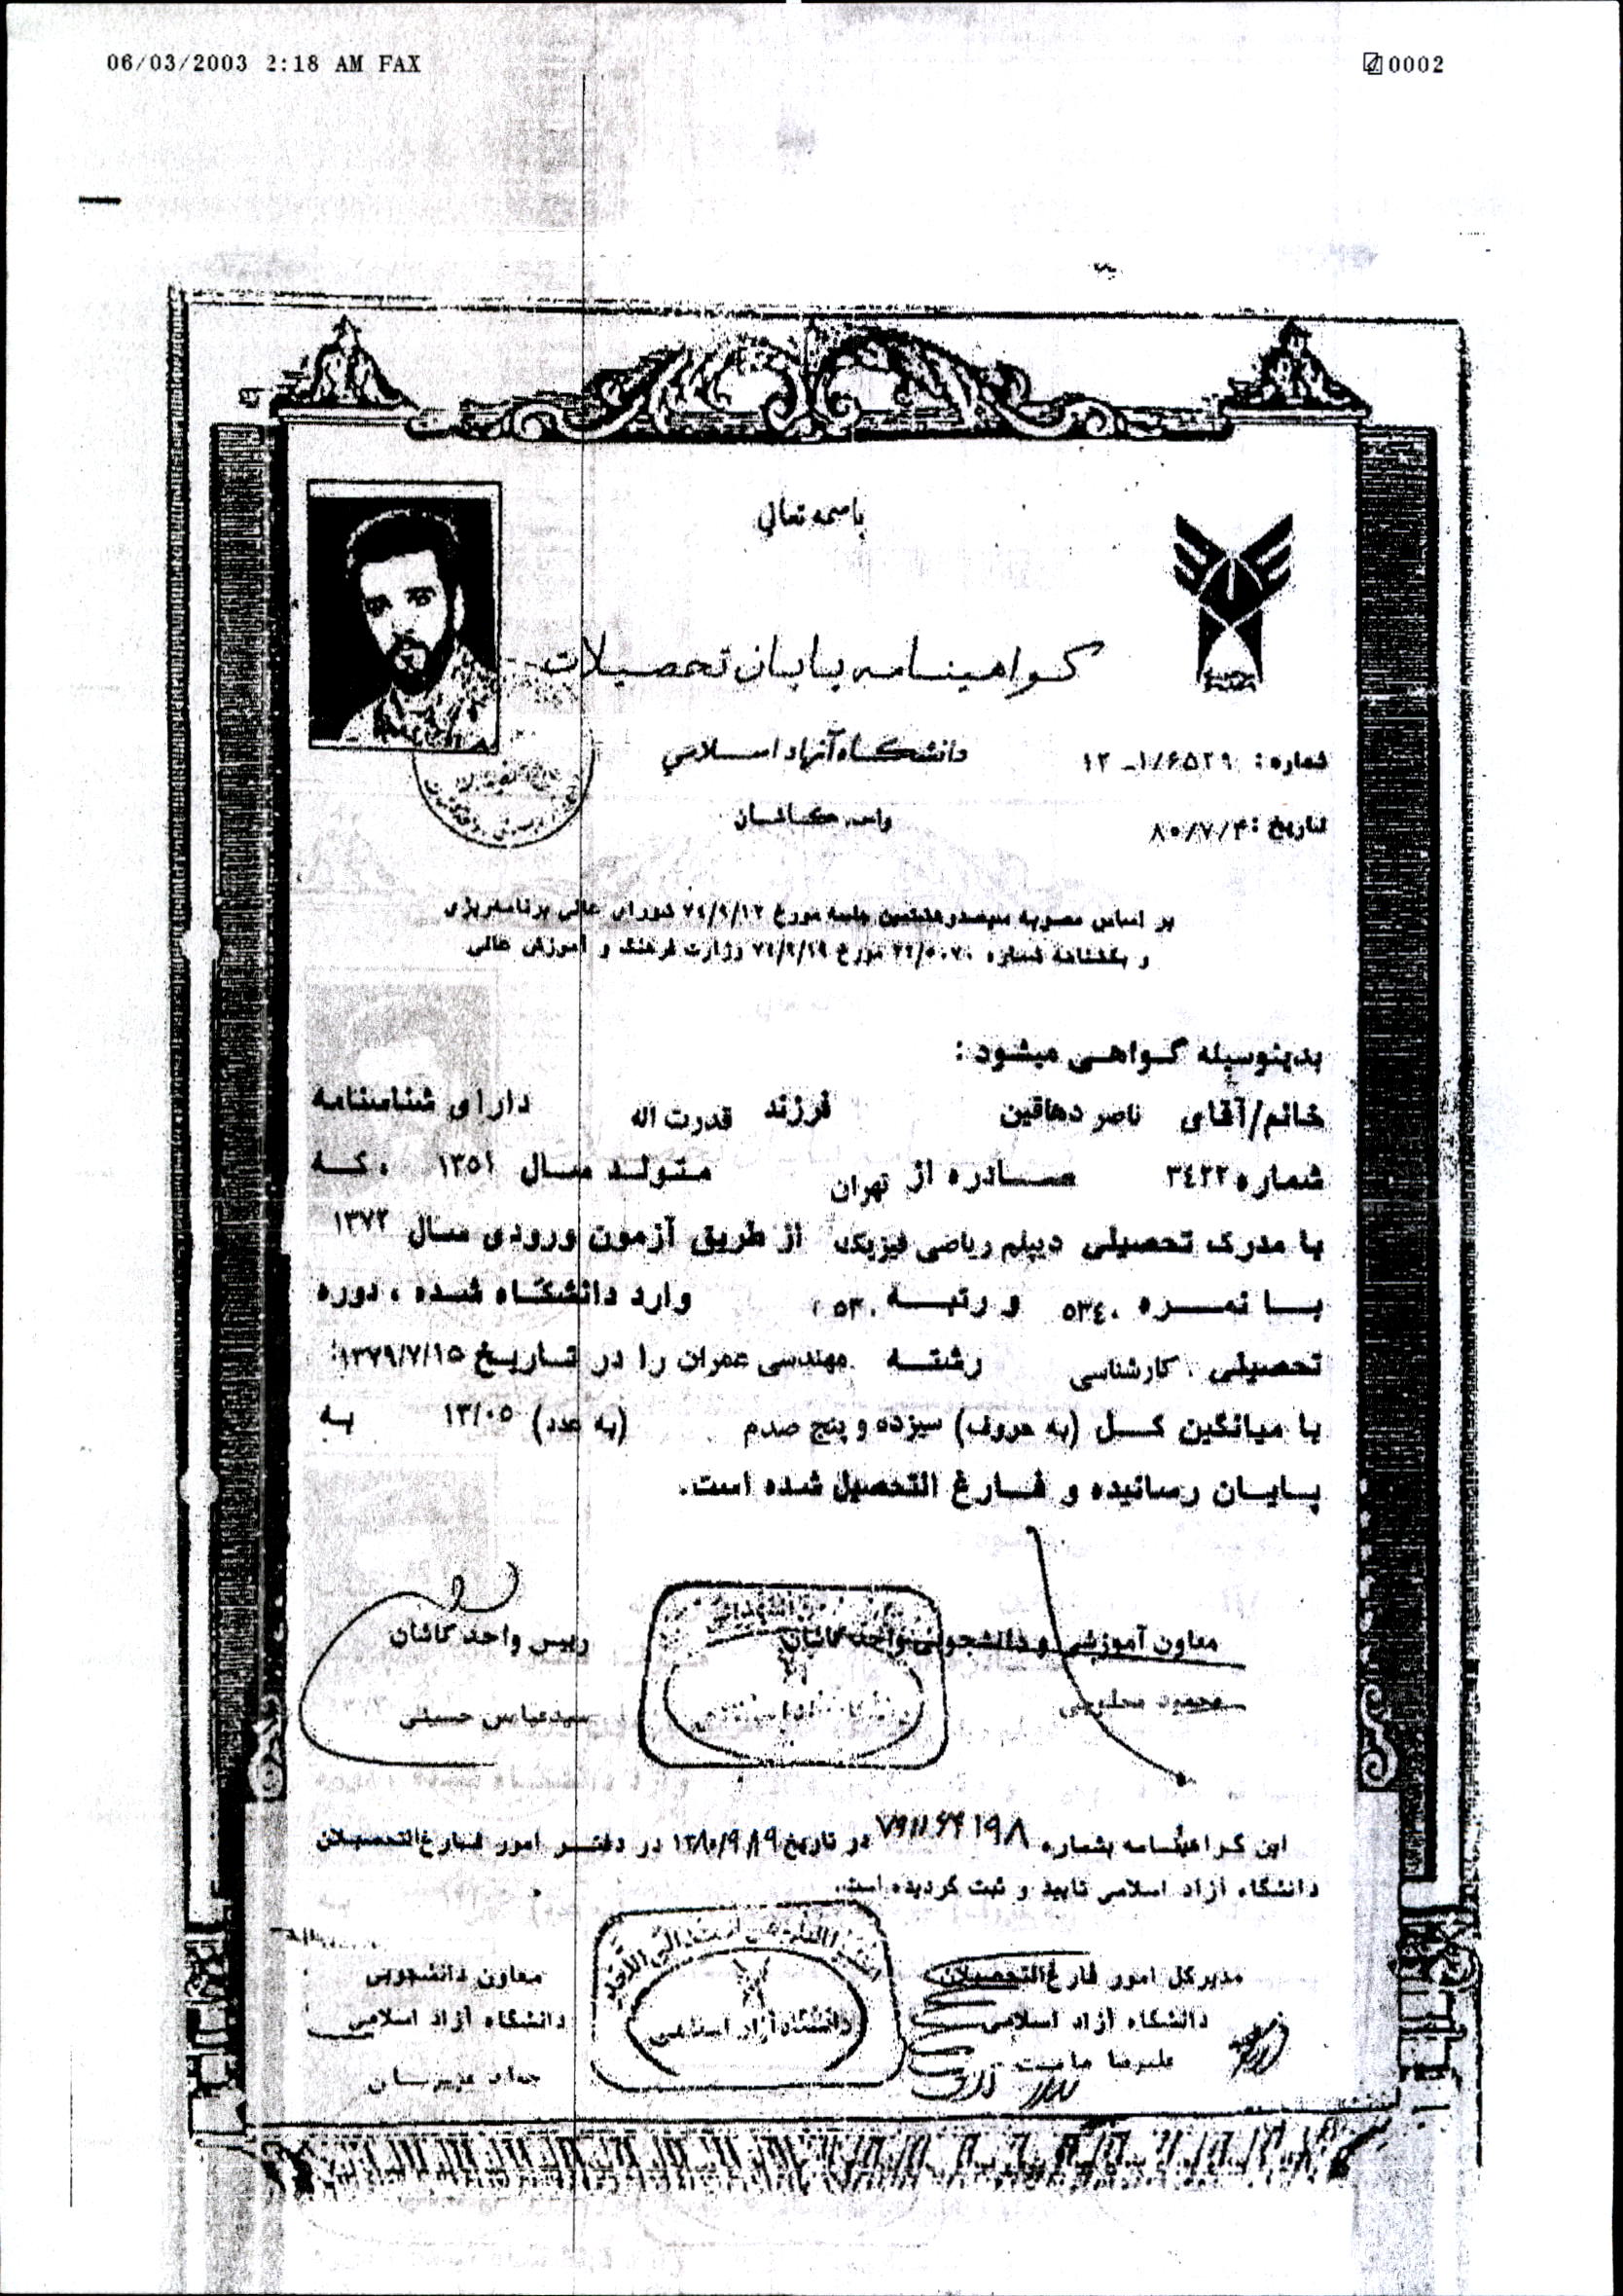 06/03/2003 2:18 AM FAX 0002
باسمه تعالی
گواهینامه پایان تحصیلات
دانشگاه آزاد اسلامی
شماره: ۱۲-۱/۶۵۲۹
واحد کاشان
تاریخ: ۸۰/۷/۴
بر اساس مصوبه سیصدوهشتمین جلسه مورخ شورای عالی برنامه‌ریزی
و بخشنامه شماره مورخ وزارت فرهنگ و آموزش عالی
بدینوسیله گواهی میشود:
خانم/آقای ناصر دهاقین فرزند قدرت اله دارای شناسنامه
شماره ۳٤۲۲ صادره از تهران متولد سال ۱۳۵۱ ، که
با مدرک تحصیلی دیپلم ریاضی فیزیک از طریق آزمون ورودی سال ۱۳۷۲
با نمره ۵۳٤۰ و رتبه وارد دانشگاه شده ، دوره
تحصیلی کارشناسی رشته مهندسی عمران را در تاریخ ۱۳۷۹/۷/۱۵
با میانگین کل (به حروف) سیزده و پنج صدم (به عدد) ۱۳/۰۵ به
پایان رسانیده و فارغ التحصیل شده است.
معاون آموزشی و دانشجویی واحد کاشان
رییس واحد کاشان
محمود
سیدعباس حسینی
این گواهینامه بشماره در تاریخ ۱۳۸۰/۹/۱۹ در دفتر امور فارغ‌التحصیلان
دانشگاه آزاد اسلامی تایید و ثبت گردیده است.
مدیرکل امور فارغ‌التحصیلان
دانشگاه آزاد اسلامی
علیرضا
دانشگاه آزاد اسلامی
معاون دانشجویی
دانشگاه آزاد اسلامی